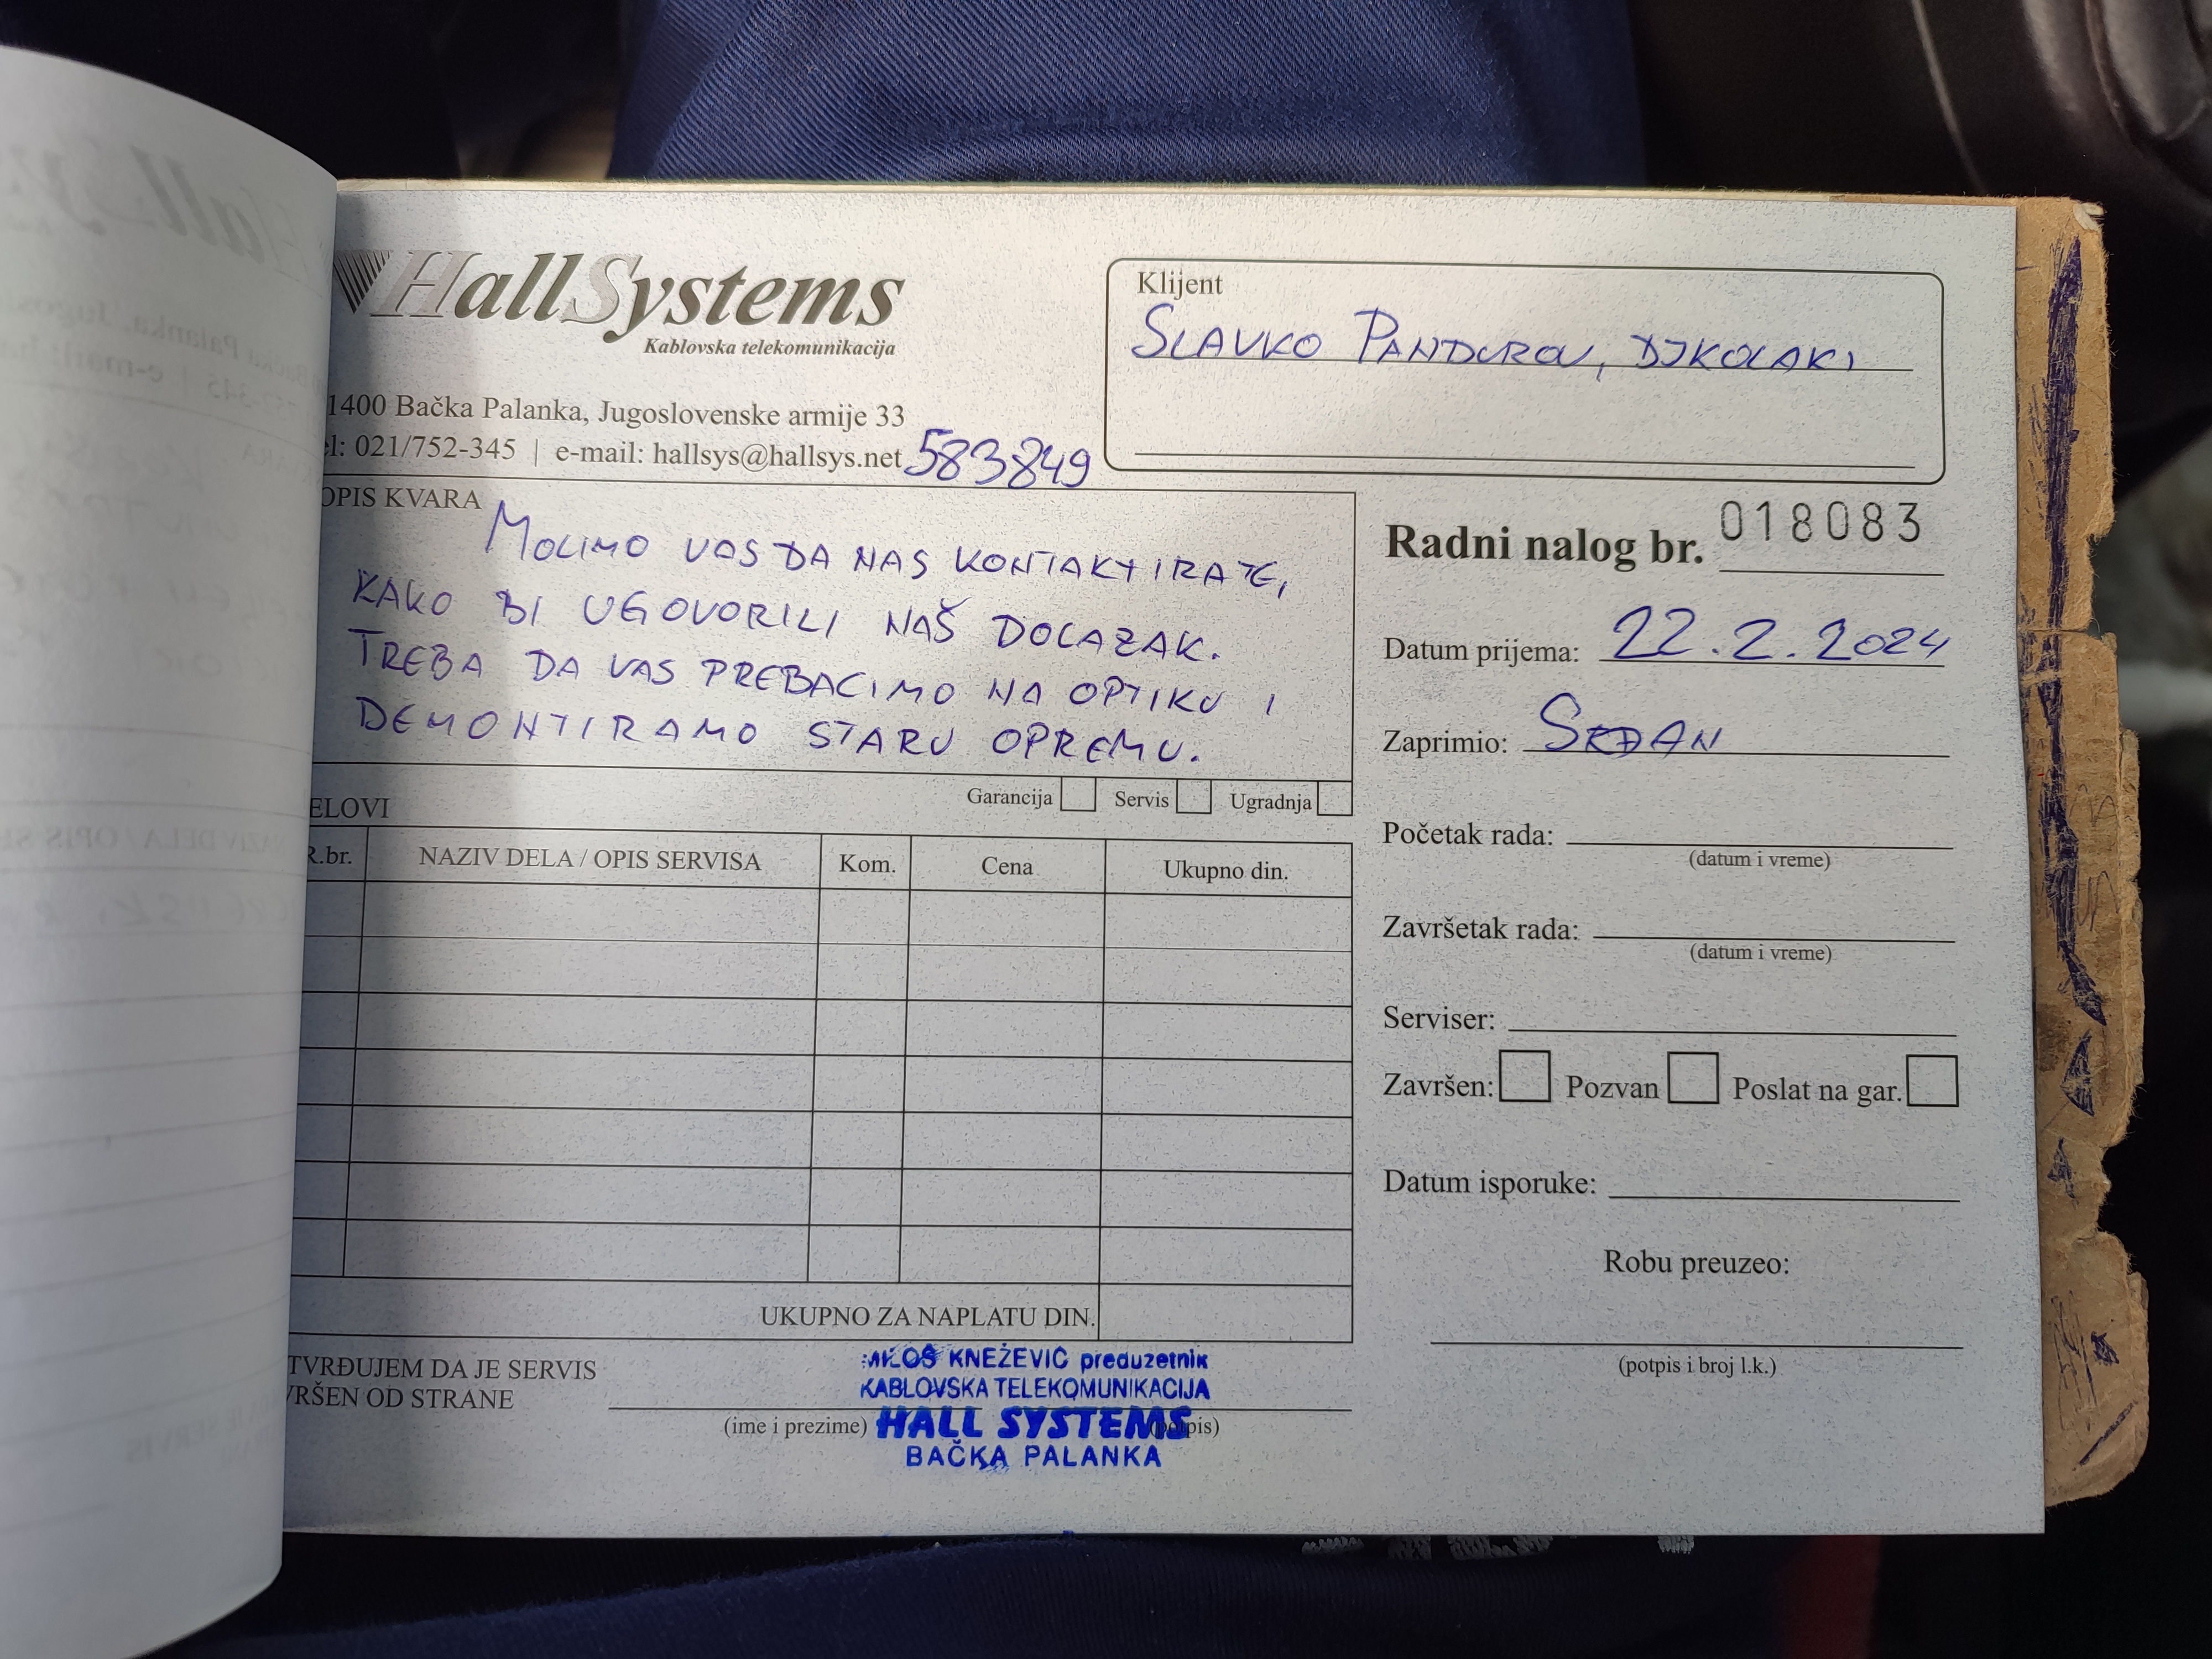 HallSystems
Kablovska telekomunikacija
1400 Bačka Palanka, Jugoslovenske armije 33
el: 021/752-345 | e-mail: hallsys@hallsys.net
583849
Klijent
SLAVKO PANDUROV,
OPIS KVARA
MOLIMO VAS DA NAS KONTAKTIRATE,
KAKO BI UGOVORILI NAŠ DOLAZAK.
TREBA DA VAS PREBACIMO NA OPTIKU I
DEMONTIRAMO STARU OPREMU.
Garancija Servis Ugradnja
ELOVI
R.br. NAZIV DELA / OPIS SERVISA Kom. Cena Ukupno din.
UKUPNO ZA NAPLATU DIN.
TVRĐUJEM DA JE SERVIS
VRŠEN OD STRANE
(ime i prezime) (potpis)
MILOŠ KNEŽEVIĆ preduzetnik
KABLOVSKA TELEKOMUNIKACIJA
HALL SYSTEMS
BAČKA PALANKA
Radni nalog br. 018083
Datum prijema: 22.2.2024
Zaprimio: SRĐAN
Početak rada:
(datum i vreme)
Završetak rada:
(datum i vreme)
Serviser:
Završen: Pozvan Poslat na gar.
Datum isporuke:
Robu preuzeo:
(potpis i broj l.k.)